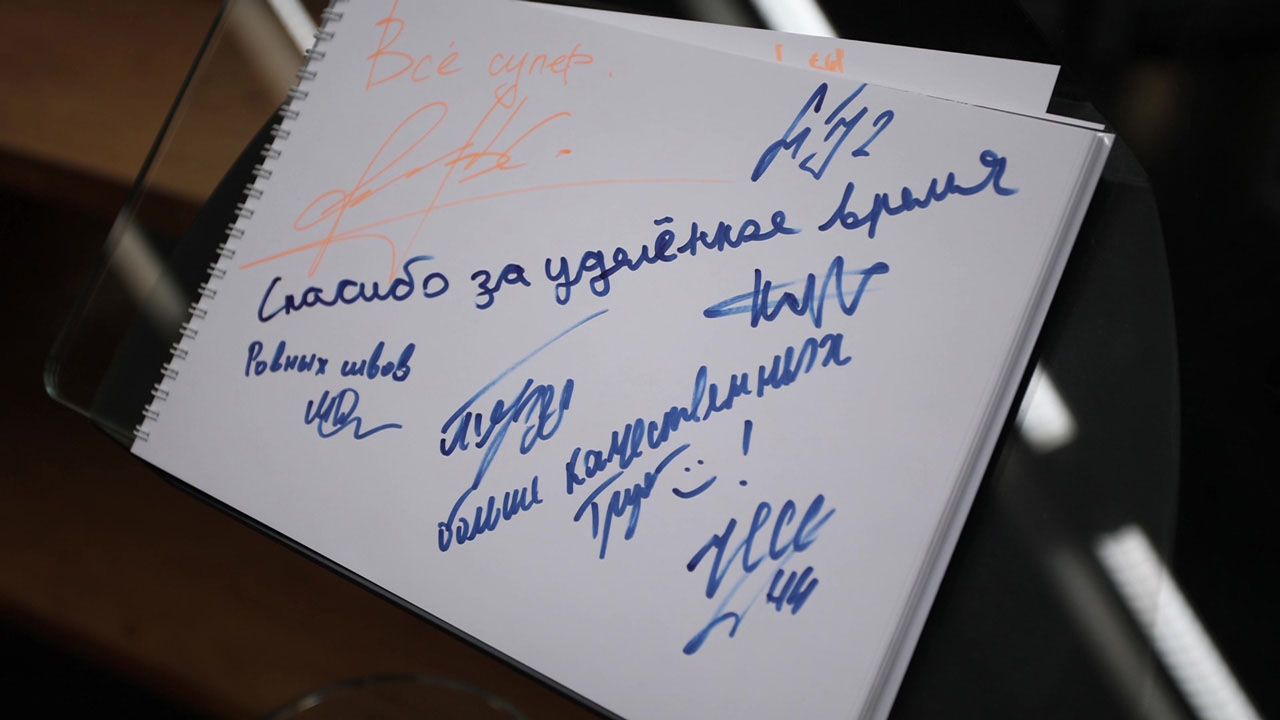 Всё супер.
Спасибо за уделённое время
Ровных швов
больше качественных
Труб :) !
44